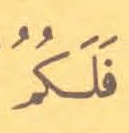 فَلَكُمُ